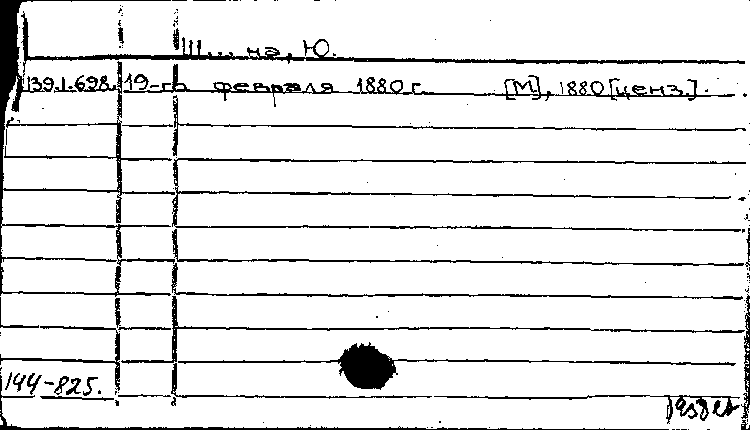 Ш... на, Ю.
139.1.698. 19-го февраля 1880 г. [М], 1880 [ценз.].
144-825.